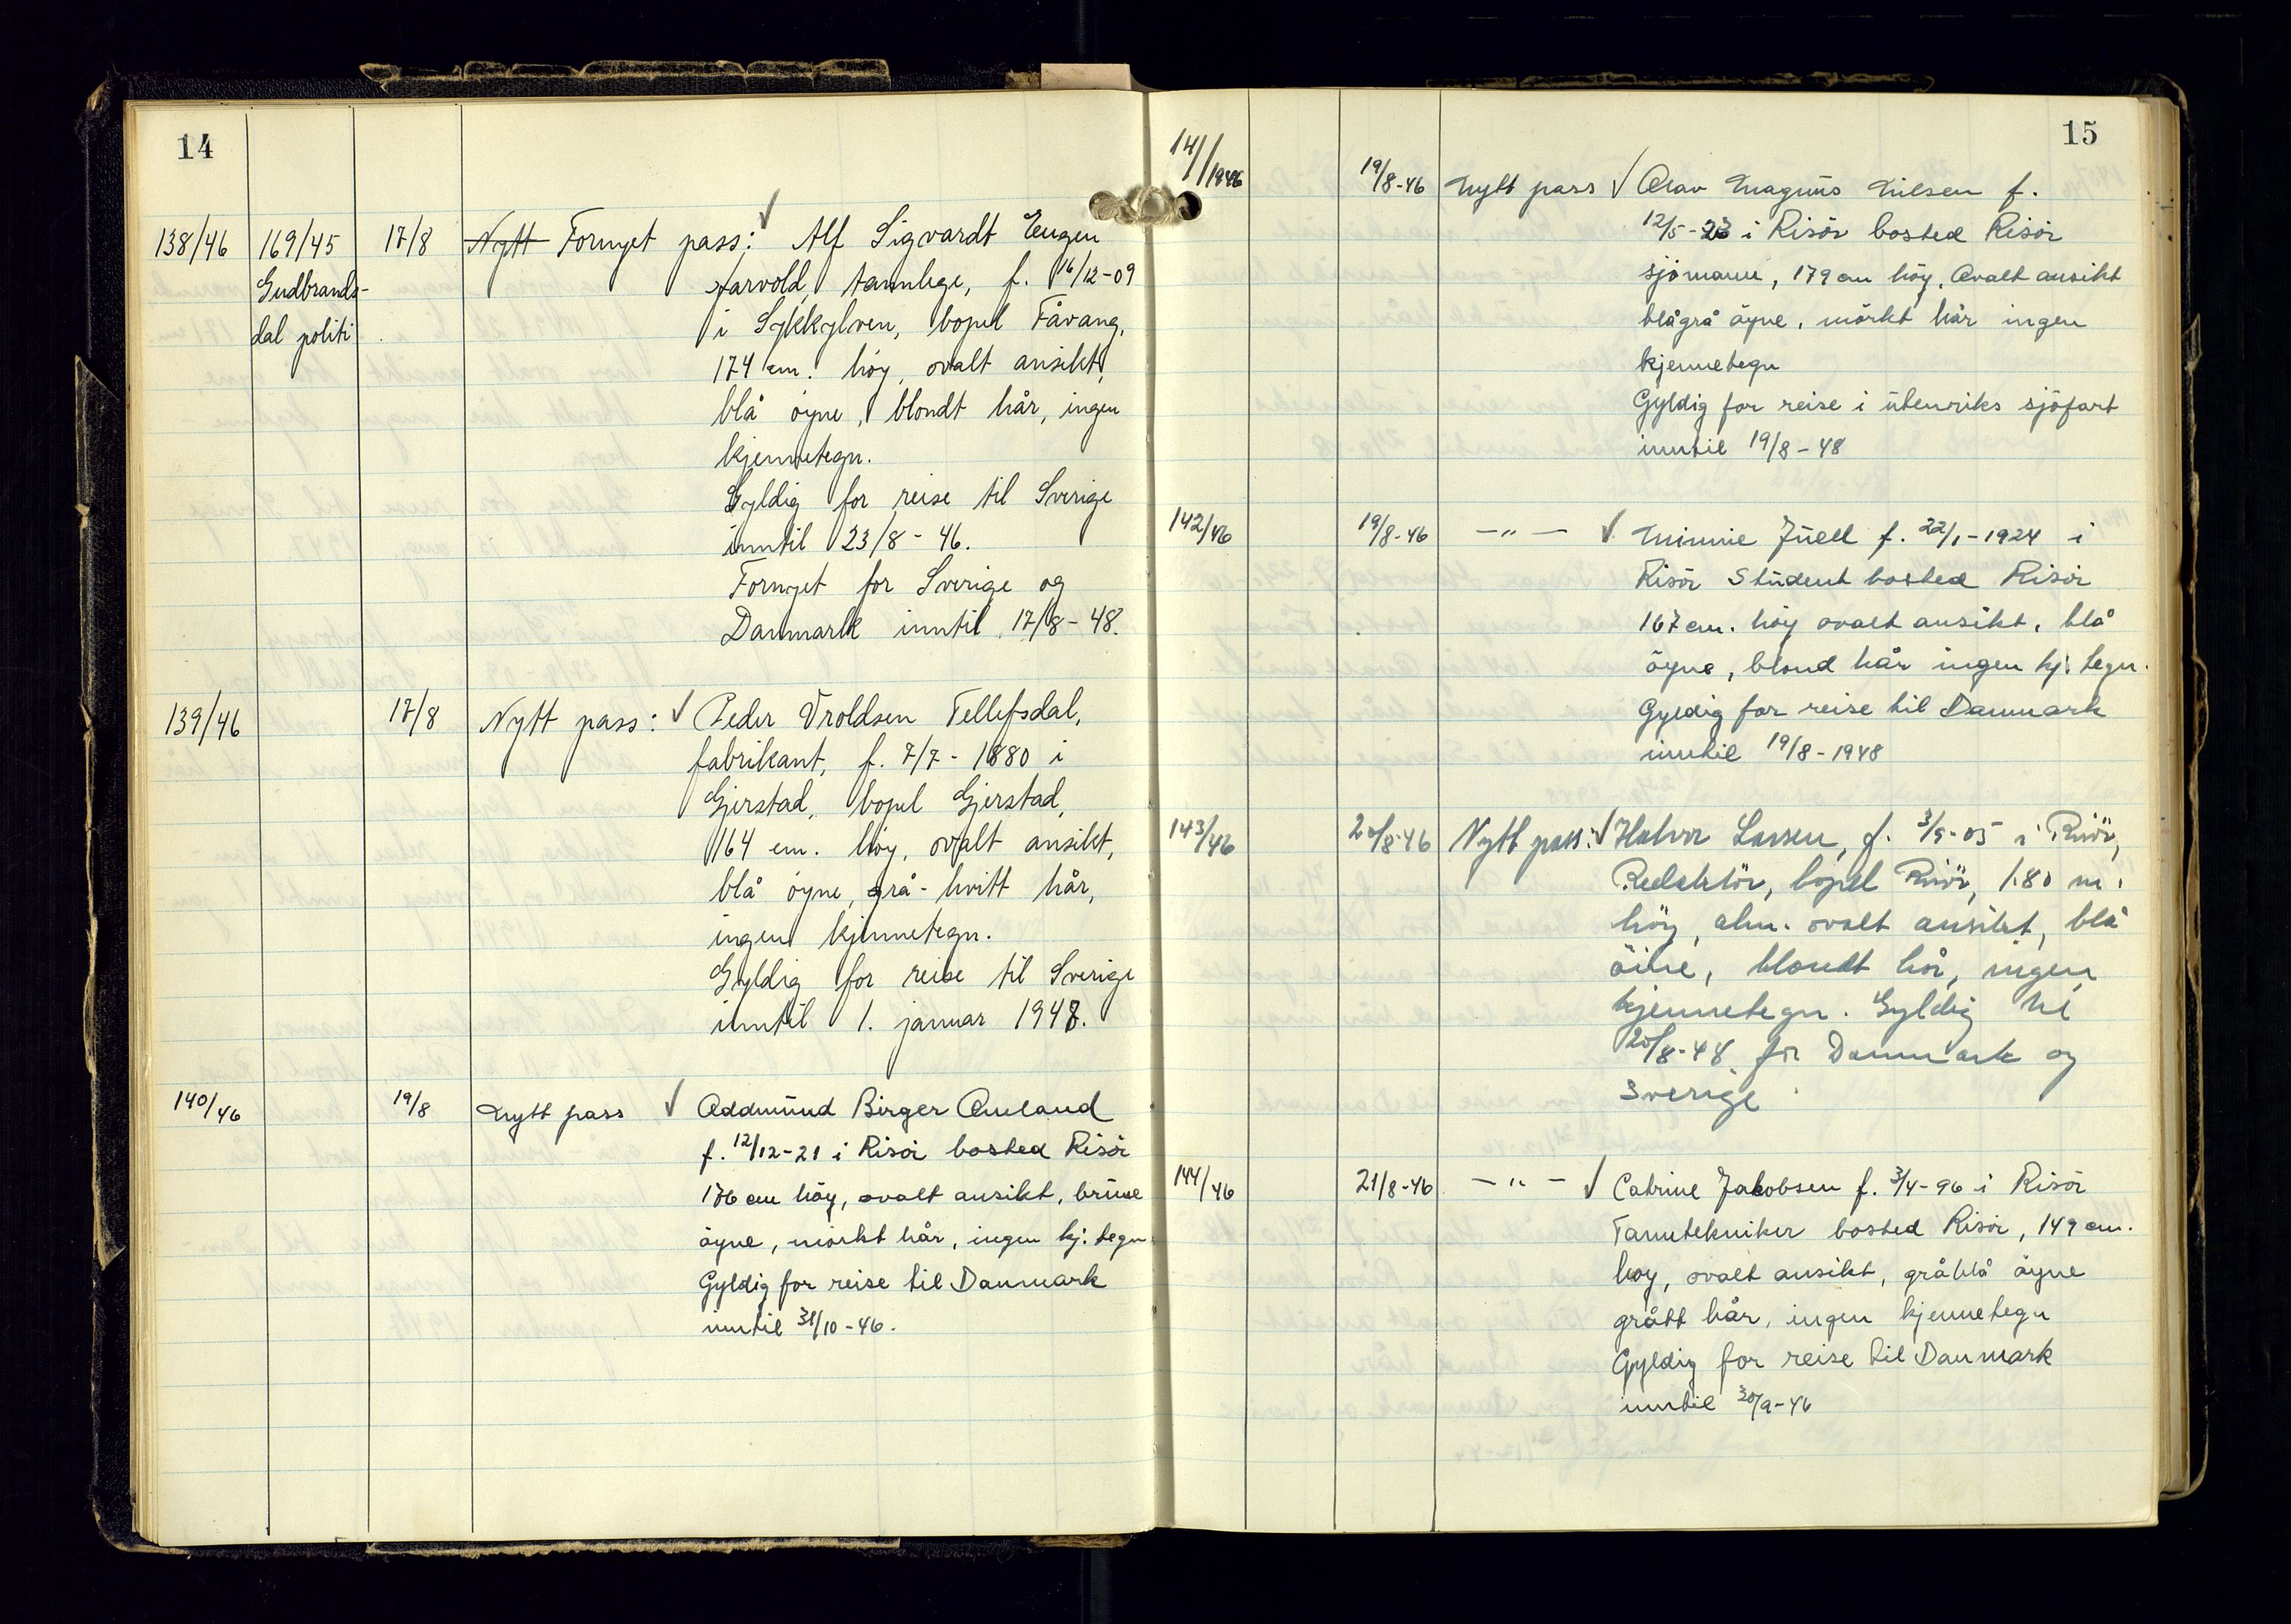 14
138/46 169/45 17/8 Nytt Fornyet pass: √ Alf Sigvardt Eugen
Gudbrands- Jarvold, tannlege, f. 16/12-09
dal politi i Sykkylven, bopel Fåvang,
174 cm. høy, ovalt ansikt,
blå øyne, blondt hår, ingen
kjennetegn.
Gyldig for reise til Sverige
inntil 23/8 - 46.
Fornyet for Sverige og
Danmark inntil 17/8 - 48.
139/46 17/8 Nytt pass: √ Peder Vroldsen Tellefsdal,
fabrikant, f. 7/7 - 1880 i
Gjerstad, bopel Gjerstad,
164 cm. høy, ovalt ansikt,
blå øyne, grå-hvitt hår,
ingen kjennetegn.
Gyldig for reise til Sverige
inntil 1. januar 1948.
140/46 19/8 Nytt pass √ Oddmund Birger Omland
f. 12/12-21 i Risör bosted Risör
176 cm höy, ovalt ansikt, brune
öyne, mörkt hår, ingen kj: tegn
Gyldig for reise til Danmark
inntil 31/10-46.
15
141/1946 19/8-46 Nytt pass √ Olav Magnus Nilsen f.
12/5-23 i Risör bosted Risör
sjömann, 179 cm höy, Ovalt ansikt
blågrå öyne, mörkt hår ingen
kjennetegn
Gyldig for reise i utenriks sjöfart
inntil 19/8-48
142/46 19/8-46 —"— √ Minnie Juell f. 22/1-1924 i
Risör Student bosted Risör
167 cm. höy ovalt ansikt, blå
öyne, blond hår ingen kj: tegn.
Gyldig for reise til Danmark
inntil 19/8-1948
143/46 20/8-46 Nytt pass: √ Halvor Lassen, f. 3/9-05 i Risör,
Redaktör, bopel Risör, 1.80 m.
höy, alm. ovalt ansikt, blå
öine, blondt hår, ingen
kjennetegn. Gyldig til
20/8-48 for Danmark og
Sverige.
144/46 21/8-46 —"— √ Catrine Jakobsen f. 3/4-96 i Risör
Tanntekniker bosted Risör, 149 cm.
höy, ovalt ansikt, gråblå öyne
grått hår, ingen kjennetegn
Gyldig for reise til Danmark
inntil 30/9-46